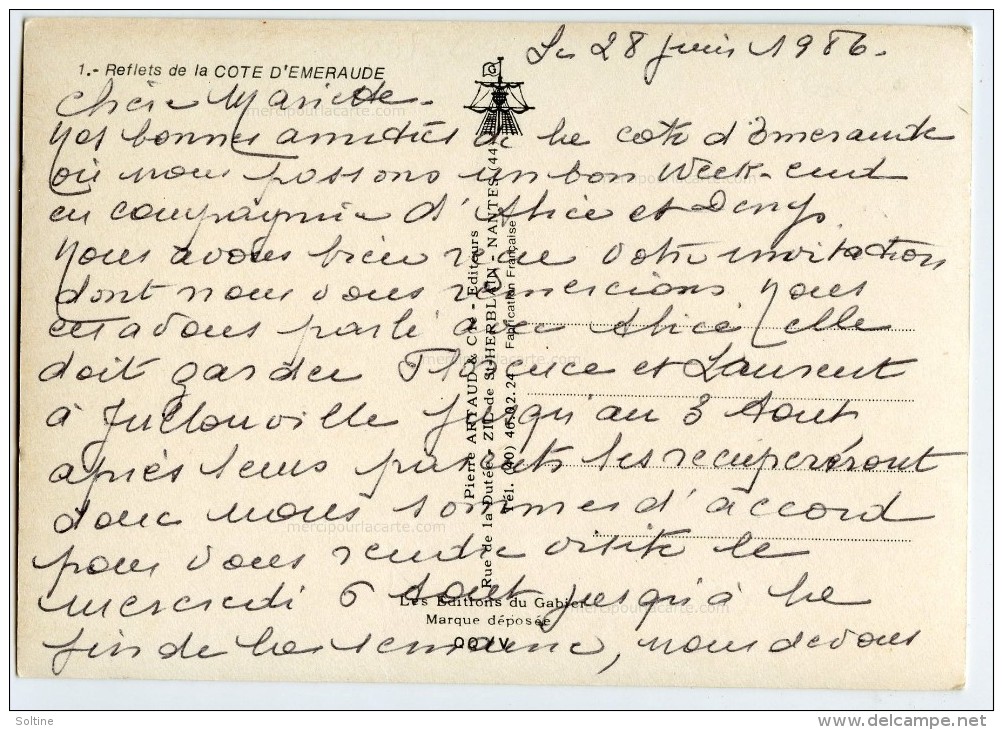 Le 28 juin 1986.
1.- Reflets de la COTE D'EMERAUDE
Chère Mariette.
Nos bonnes amitiés de la cote d'Emeraude
où nous passons un bon Week-end
en compagnie d'Alice et Denys
Nous avons bien reçue votre invitation
dont nous vous remercions. Nous
en avons parlé avec Alice, elle
doit garder Florence et Laurent
à Jullouville jusqu'au 3 Aout
après leurs parents les récupéreront
donc nous sommes d'accord
pour vous rendre visite le
mercredi 6 Aout jusqu'à la
fin de la semaine, nous devons
Pierre ARTAUD & Cie - Editeurs
Rue de la Dutée - ZIL de St-HERBLAIN - NANTES (44)
Tél. (40) 46.02.24 Fabrication Française
Les Editions du Gabier
Marque déposée
OO IV
mercipourlacarte.com
mercipourlacarte.com
mercipourlacarte.com
mercipourlacarte.com
mercipourlacarte.com
Soltine
www.delcampe.net